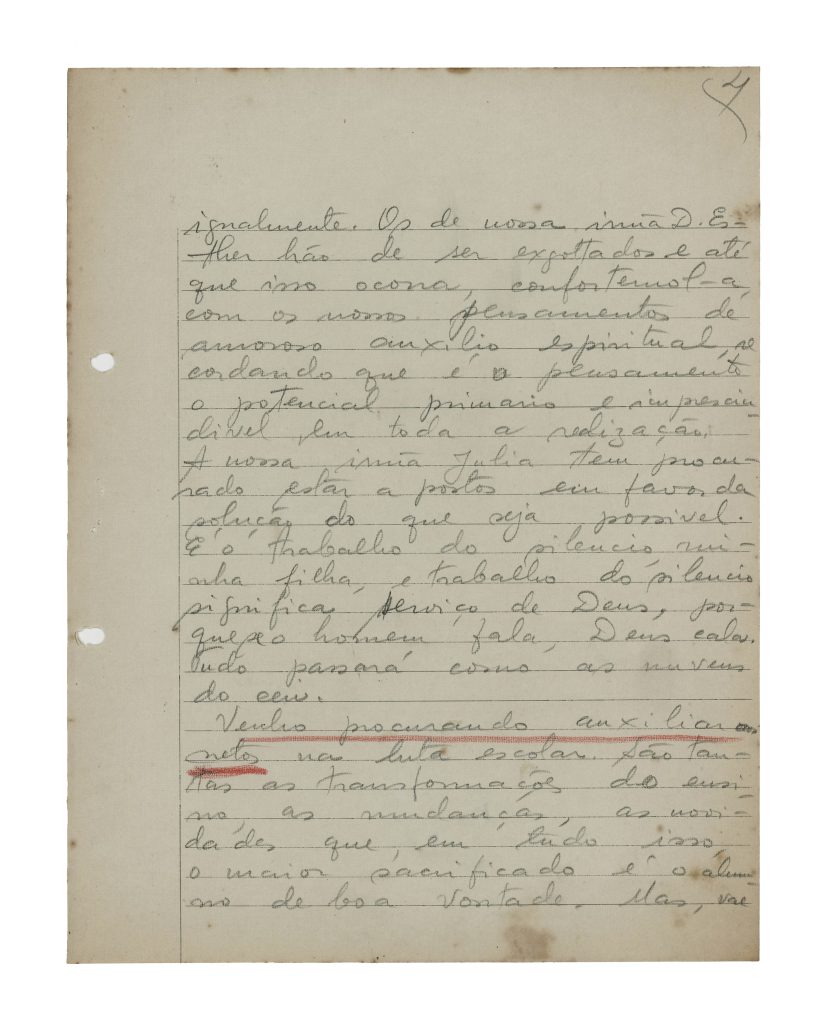 4
igualmente. Os de nossa irmã D. Es-
ther hão de ser exgottados e até
que isso ocorra, confortemol-a,
com os nossos pensamentos de
amoroso auxilio espiritual, re
cordando que é o pensamento
o potencial primario e imprescin-
divel, em toda a realização.
A nossa irmã Julia tem procu-
rado estar a postos em favor da
solução do que seja possivel.
É o trabalho do silencio, mi-
nha filha, e trabalho do silencio
significa serviço de Deus, por-
que o homem fala, Deus cala.
Tudo passará como as nuvens
do ceu.
Venho procurando auxiliar aos
netos na luta escolar. São tan-
tas as transformações do ensi
no, as mudanças, as novi-
dades que, em tudo isso,
o maior sacrificado é o alum-
no de boa vontade. Mas, vae